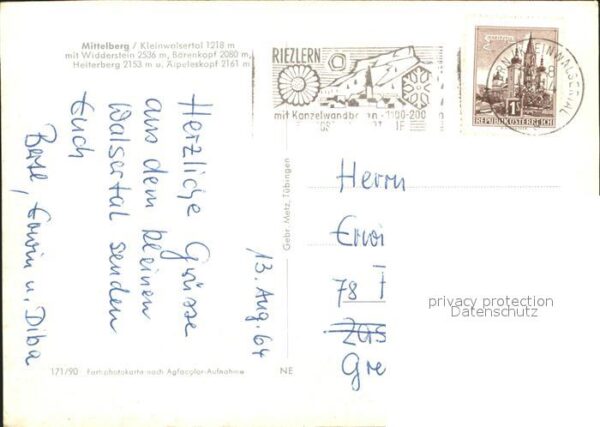 Mittelberg / Kleinwalsertal 1218 m
mit Widderstein 2536 m, Bärenkopf 2080 m,
Heiterberg 2153 m u. Aipeleskopf 2161 m
Herzliche Grüsse
aus dem kleinen
Walsertal senden
Euch
Erwin u. Diba
13. Aug. 64
171/90 Farbphotokarte nach Agfacolor-Aufnahme
NE
Gebr. Metz, Tübingen
RIEZLERN
mit Kanzelwandbahn - 1100-200
MARIAZELL
1S
REPUBLIK ÖSTERREICH
KLEINWALSERTAL
Herrn
Erwi
78 F
Gre
privacy protection
Datenschutz